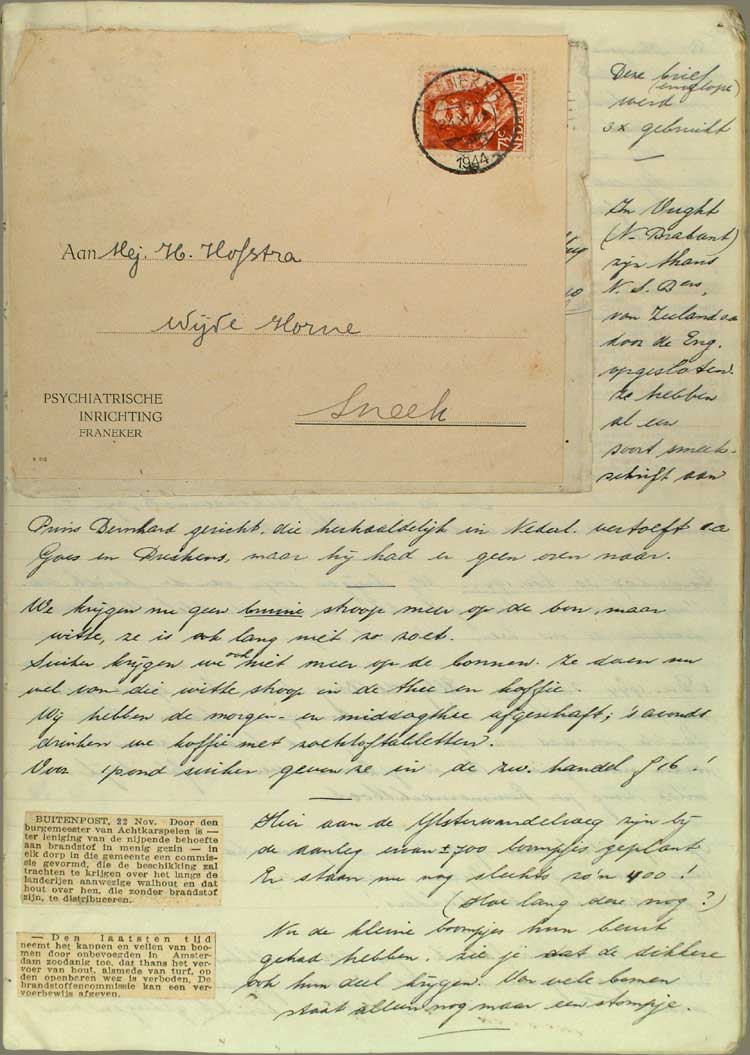 NEDERLAND
7½c
1944
Aan Mej. H. Hofstra
Wijde Horne
Sneek
PSYCHIATRISCHE
INRICHTING
FRANEKER
Deze brief
(enveloppe)
werd
3x gebruikt
In Vught
(N. Brabant)
zijn thans
N.S.Bers,
van Zeeland
door de Eng.
opgesloten.
Ze hebben
al een
soort smeek-
schrift aan
Prins Bernhard gericht, die herhaaldelijk in Nederl. vertoeft
Goes en Breskens, maar hij had er geen ooren naar.
We krijgen nu geen bruine stroop meer op de bon, maar
witte, ze is ook lang niet zo zoet.
Suiker krijgen we ook niet meer op de bonnen. Ze doen nu
wel van die witte stroop in de thee en koffie.
Wij hebben de morgen- en middagthee afgeschaft; 's avonds
drinken we koffie met zoetstoftabletten.
Voor 1 pond suiker geven ze in de zw. handel
BUITENPOST, 22 Nov. Door den
burgemeester van Achtkarspelen is —
ter leniging van de nijpende behoefte
aan brandstof in menig gezin — in
elk dorp in die gemeente een commis-
sie gevormd, die de beschikking zal
trachten te krijgen over het langs de
landerijen aanwezige walhout en dat
hout over hen, die zonder brandstof
zijn, te distribueeren.
— Den laatsten tijd
neemt het kappen en vellen van boo-
men door onbevoegden in Amster-
dam zoodanig toe, dat thans het ver-
voer van hout, alsmede van turf, op
den openbaren weg is verboden. De
brandstoffencommissie kan een ver-
voerbewijs afgeven.
Hier aan de IJlsterwandelweg zijn bij
de aanleg ervan ± 700 boompjes geplant
Er staan nu nog slechts zo'n 400!
(Hoe lang deze nog?)
Nu de kleine boompjes hun beurt
gehad hebben, zie je dat de dikkere
ook hun deel krijgen. Van vele bomen
staat alleen nog maar een stompje.